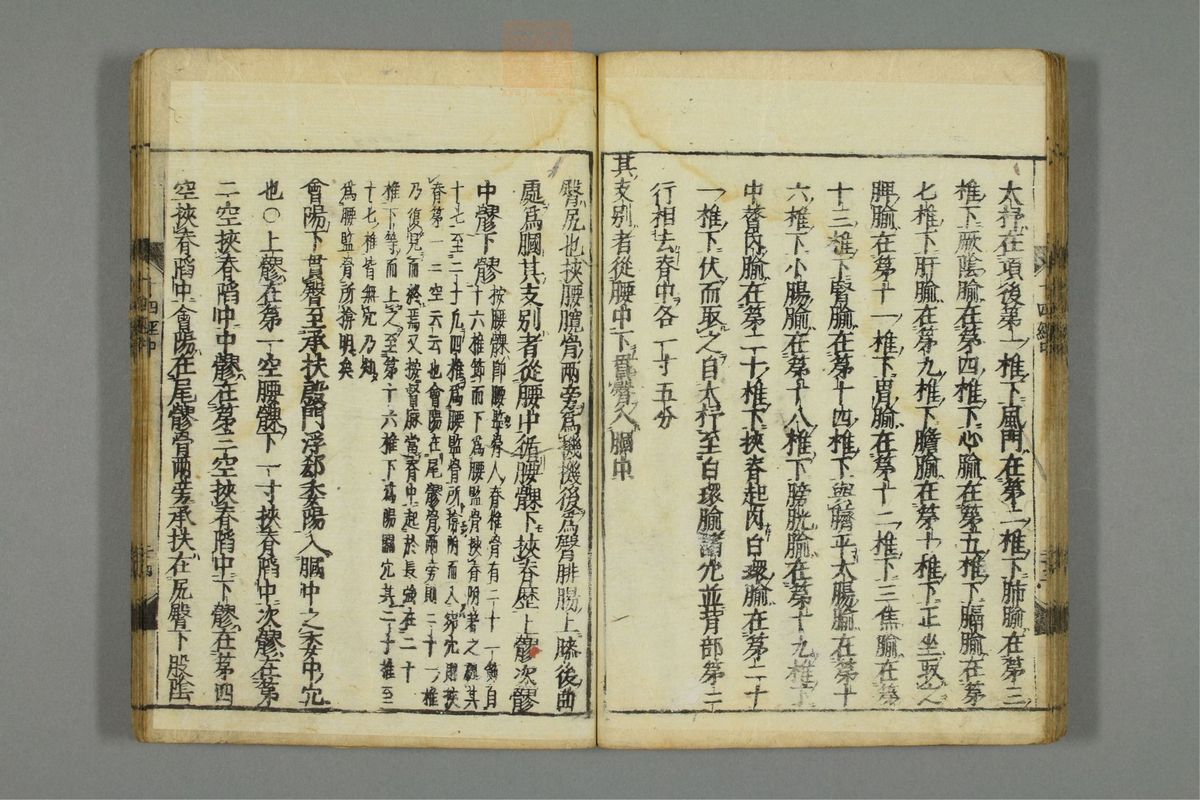 大杼在項後第一椎下風門在第二椎下肺腧在第三
椎下厥陰腧在第四椎下心腧在第五椎下膈腧在第
七椎下肝腧在第九椎下膽腧在第十椎下正坐取之
脾腧在第十一椎下胃腧在第十二椎下三焦腧在第
十三椎下腎腧在第十四椎下與臍平大腸腧在第十
六椎下小腸腧在第十八椎下膀胱腧在第十九椎下
中膂內腧在第二十椎下挾脊起肉白環腧在第二十
一椎下伏而取之自大杼至白環腧諸穴並背部第二
行相去脊中各一寸五分
其支別者從腰中下貫臀入膕中
臀尻也挾腰髖骨兩旁爲機機後爲臀腓腸上膝後曲
處爲膕其支別者從腰中循腰髁下挾脊歷上髎次髎
中髎下髎
按腰髁即腰監骨人脊椎骨有二十一節自
十六椎節而下爲腰監骨挾脊附著之處其
十七至二十凡四椎爲腰監骨所揜附而八穴則挾
脊第一二空云云也會陽在尾髎骨兩旁則二十一椎
乃復見而終焉又按督脉當脊中起於長強在二十一
椎下等而上之至第十六椎下爲陽關穴其二十椎至
十七椎皆無穴乃知
爲腰監骨所揜明矣
會陽下貫臀至承扶殷門浮郄委陽入膕中之委中穴
也○上髎在第一空腰髁下一寸挾脊陷中次髎在第
二空挾脊陷中中髎在第三空挾脊陷中下髎在第四
空挾脊陷中會陽在尾髎骨兩旁承扶在尻臀下股陰
十四經中